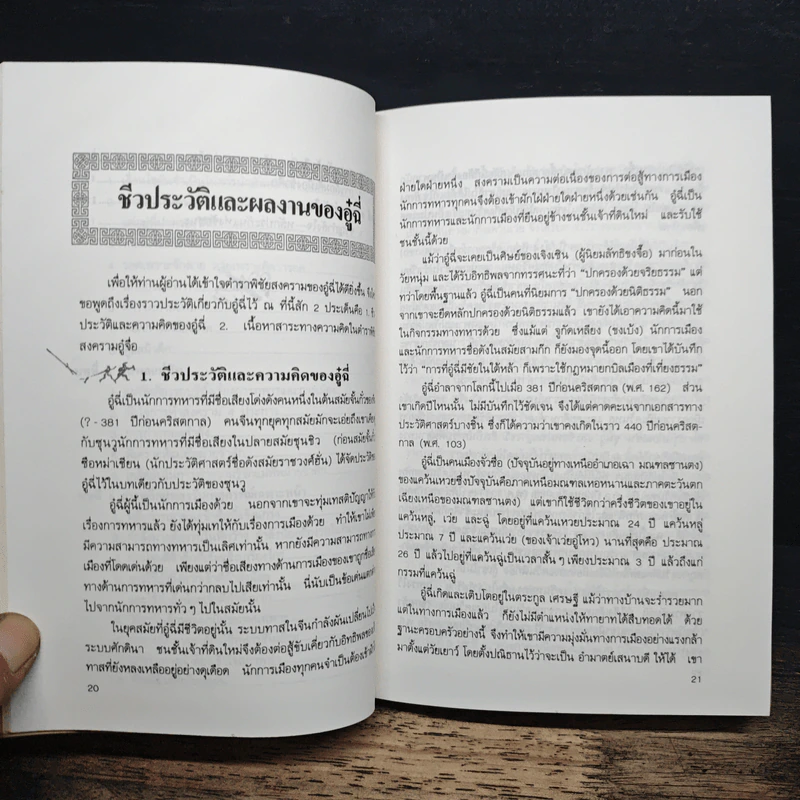 ชีวประวัติและผลงานของอู๋ฉี่
เพื่อให้ท่านผู้อ่านได้เข้าใจตำราพิชัยสงครามของอู๋ฉี่ได้ดียิ่งขึ้น จึง
ขอพูดถึงเรื่องราวประวัติเกี่ยวกับอู๋ฉี่ไว้ ณ ที่นี้สัก 2 ประเด็นคือ 1.
ประวัติและความคิดของอู๋ฉี่ 2. เนื้อหาสาระทางความคิดในตำรา
สงครามอู๋จื่อ
1. ชีวประวัติและความคิดของอู๋ฉี่
อู๋ฉี่เป็นนักการทหารที่มีชื่อเสียงโด่งดังคนหนึ่งในต้นสมัยจั้นกั๋วของ
(? - 381 ปีก่อนคริสตกาล) คนจีนทุกยุคทุกสมัยมักจะเอ่ยถึงเขา
กับซุนวูนักการทหารที่มีชื่อเสียงในปลายสมัยชุนชิว (ก่อนสมัยจั้น
ซือหม่าเชียน (นักประวัติศาสตร์ชื่อดังสมัยราชวงศ์ฮั่น) ได้จัดประวัติ
อู๋ฉี่ไว้ในบทเดียวกับประวัติของซุนวู
อู๋ฉี่ผู้นี้เป็นนักการเมืองด้วย นอกจากเขาจะทุ่มเทสติปัญญาให้
เรื่องการทหารแล้ว ยังได้ทุ่มเทให้กับเรื่องการเมืองด้วย ทำให้เขาไม่
มีความสามารถทางทหารเป็นเลิศเท่านั้น หากยังมีความสามารถทาง
เมืองที่โดดเด่นด้วย เพียงแต่ว่าชื่อเสียงทางด้านการเมืองของเขาถูก
ทางด้านการทหารที่เด่นกว่ากลบไปเสียเท่านั้น นี่นับเป็นข้อเด่น
ไปจากนักการทหารทั่ว ๆ ไปในสมัยนั้น
ในยุคสมัยที่อู๋ฉี่มีชีวิตอยู่นั้น ระบบทาสในจีนกำลังผันเปลี่ยนไป
ระบบศักดินา ชนชั้นเจ้าที่ดินใหม่จึงต้องต่อสู้ขับเคี่ยวกับอิทธิพลของ
ทาสที่ยังหลงเหลืออยู่อย่างดุเดือด นักการเมืองทุกคนจำเป็นต้องเข้า
20
ฝ่ายใดฝ่ายหนึ่ง สงครามเป็นความต่อเนื่องของการต่อสู้ทางการเมือง
นักการทหารทุกคนก็จึงต้องเข้าฝักใฝ่ฝ่ายใดฝ่ายหนึ่งด้วยเช่นกัน อู๋ฉี่เป็น
นักการทหารและนักการเมืองที่ยืนอยู่ข้างชนชั้นเจ้าที่ดินใหม่ และรับใช้
ชนชั้นนี้ด้วย
แม้ว่าอู๋ฉี่จะเคยเป็นศิษย์ของเจิงเซิน (ผู้นิยมลัทธิขงจื๊อ) มาก่อนใน
วัยหนุ่ม และได้รับอิทธิพลจากทรรศนะที่ว่า “ปกครองด้วยจริยธรรม” แต่
ทว่าโดยพื้นฐานแล้ว อู๋ฉี่เป็นคนที่นิยมการ “ปกครองด้วยนิติธรรม” นอก
จากเขาจะยึดหลักปกครองด้วยนิติธรรมแล้ว เขายังได้เอาความคิดนี้มาใช้
ในกิจกรรมทางทหารด้วย ซึ่งแม้แต่ จูกัดเหลียง (ขงเบ้ง) นักการเมือง
และนักการทหารชื่อดังในสมัยสามก๊ก ก็ยังมองจุดนี้ออก โดยเขาได้บันทึก
ไว้ว่า “การที่อู๋ฉี่มีชัยในใต้หล้า ก็เพราะใช้กฎหมายกบิลเมืองที่เที่ยงธรรม”
อู๋ฉี่อำลาจากโลกนี้ไปเมื่อ 381 ปีก่อนคริสตกาล (พ.ศ. 162) ส่วน
เขาเกิดปีไหนนั้น ไม่มีบันทึกไว้ชัดเจน จึงได้แต่คาดคะเนจากเอกสารทาง
ประวัติศาสตร์บางชิ้น ซึ่งก็ได้ความว่าเขาคงเกิดในราว 440 ปีก่อนคริสต-
กาล (พ.ศ. 103)
อู๋ฉี่เป็นคนเมืองจั่วชื่อ (ปัจจุบันอยู่ทางเหนืออำเภอเฉา มณฑลซานตง)
ของแคว้นเหวยซึ่งปัจจุบันคือภาคเหนือมณฑลเหอหนานและภาคตะวันตก
เฉียงเหนือของมณฑลซานตง) แต่เขาก็ใช้ชีวิตกว่าครึ่งชีวิตของเขาอยู่ใน
แคว้นหลู่, เว่ย และฉู่ โดยอยู่ที่แคว้นเหวยประมาณ 24 ปี แคว้นหลู่
ประมาณ 7 ปี และแคว้นเว่ย (ของเจ้าเว่ยอู่โหว) นานที่สุดคือ ประมาณ
26 ปี แล้วไปอยู่ที่แคว้นฉู่เป็นเวลาสั้น ๆ เพียงประมาณ 3 ปี แล้วถึงแก่
กรรมที่แคว้นฉู่
อู๋ฉี่เกิดและเติบโตอยู่ในตระกูล เศรษฐี แม้ว่าทางบ้านจะร่ำรวยมาก
แต่ในทางการเมืองแล้ว ก็ยังไม่มีตำแหน่งให้ทายาทได้สืบทอดได้ ด้วย
ฐานะครอบครัวอย่างนี้ จึงทำให้เขามีความมุ่งมั่นทางการเมืองอย่างแรงกล้า
มาตั้งแต่วัยเยาว์ โดยตั้งปณิธานไว้ว่าจะเป็น อำมาตย์เสนาบดี ให้ได้ เขา
21